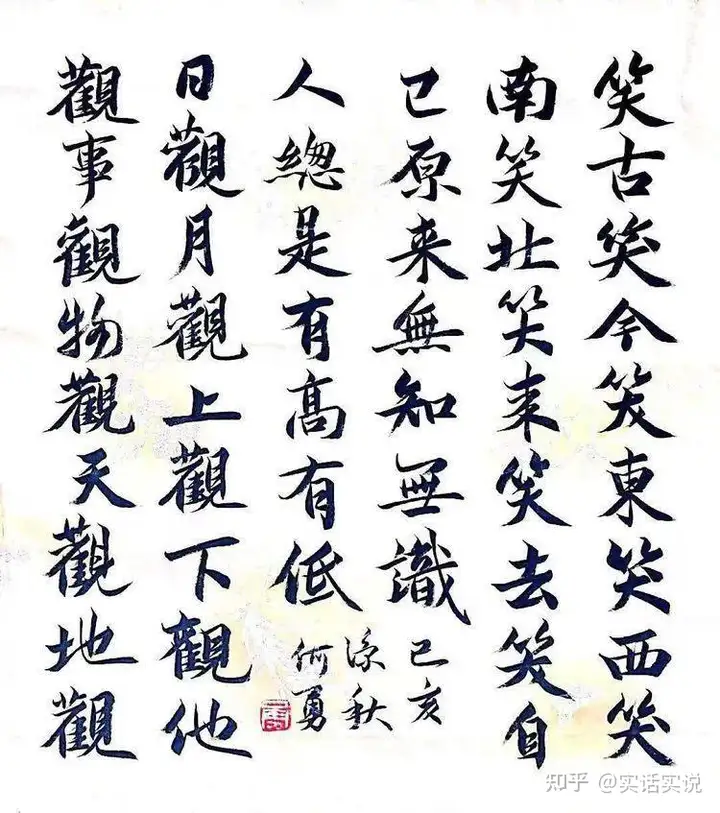 笑古笑今笑東笑西笑
南笑北笑来笑去笑自
己原来無知無識
觀事觀物觀天觀地觀
日觀月觀上觀下觀他
人總是有高有低
己亥
涼秋
何勇
知乎 @实话实说